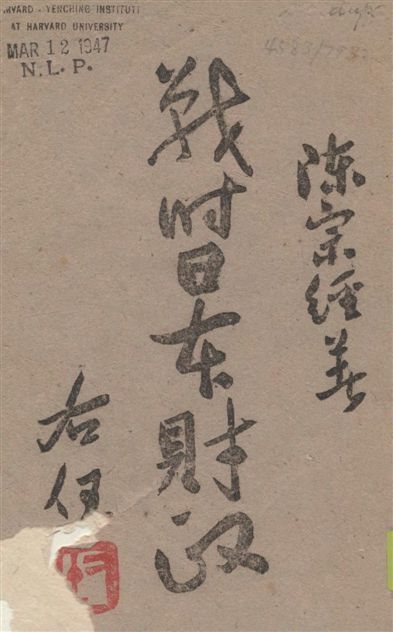 HARVARD - YENCHING INSTITUTE
AT HARVARD UNIVERSITY
MAR 12 1947
N. L. P.
陈宗经著
战时日本财政
右任